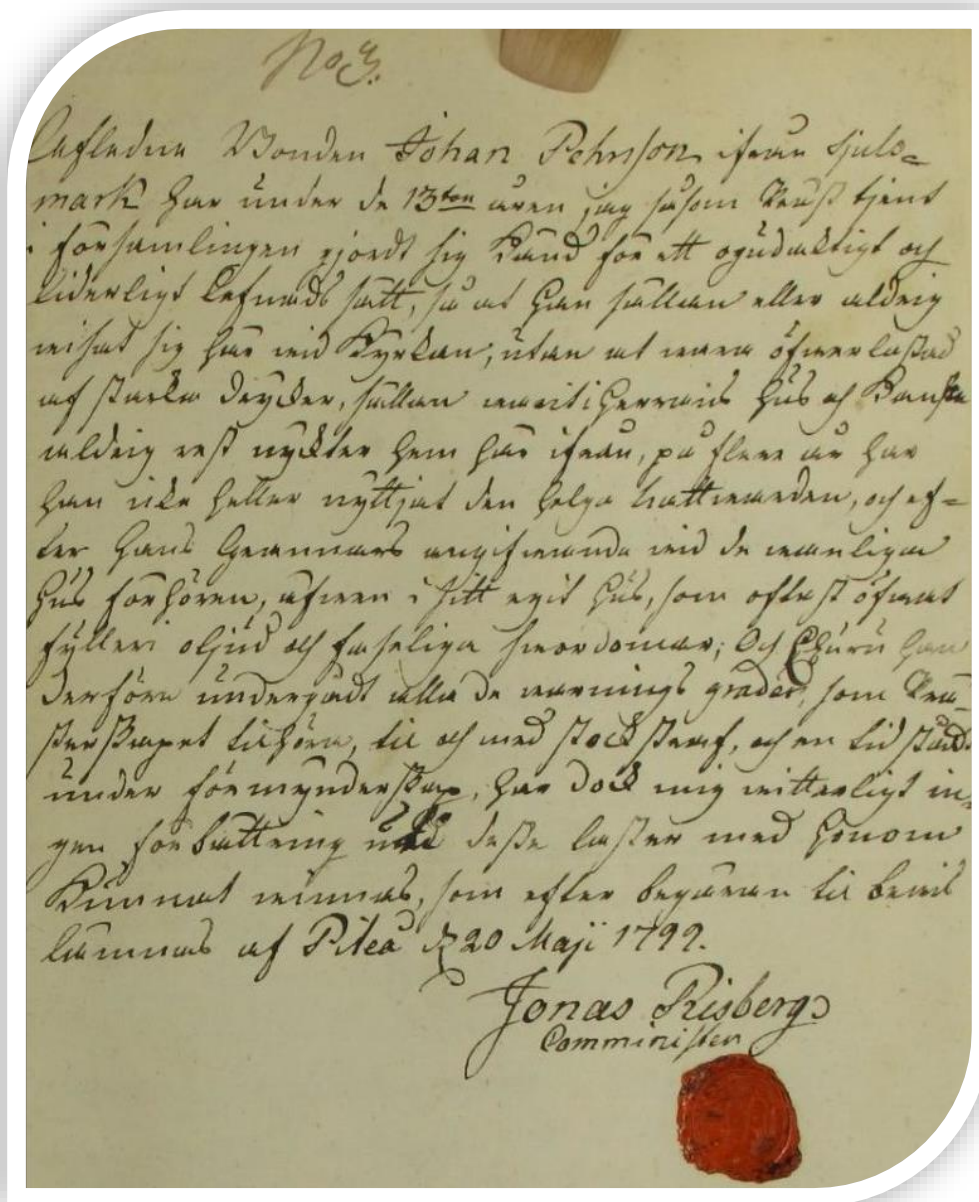 No 3.
Aflednе Bonden Johan Pehrsson ifrån Sjuls=
mark har under de 13ton åren jag såsom Präst tjent
i församlingen gjordt sig känd för ett ogudaktigt och
liderligt lefnads sätt, så at han sällan eller aldrig
wisat sig här wid Kyrkan, utan at wara öfwerlastad
af starka drycker, sällan warit i Herrans hus och kanske
aldrig rest nykter hem här ifrån, på flere år har
han icke heller nyttjat den helga nattwarden, och ef=
ter hans Grannars angifwande wid de wanliga
hus förhören, äfwen i sitt egit hus, som oftast öfwat
fylleri oljud och faseliga swordomar; Och Ehuru han
derföre undergådt alla de warnings grader, som Prä=
sterskapet tilhöra, til och med stockstraf, och en tid stådt
under förmynderskap, har dock mig witterligt in=
gen förbättring desse laster med honom
kunnat winnas, som efter begäran til bewis
lämnas af Piteå d 20 Maji 1799.
Jonas Risberg
Comminister